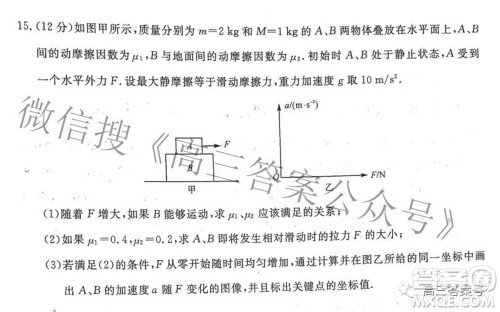 15.(12分)如图甲所示,质量分别为m=2 kg和M=1 kg的A、B两物体叠放在水平面上,A、B
间的动摩擦因数为μ₁,B与地面间的动摩擦因数为μ₂.初始时A、B处于静止状态,A受到
一个水平外力F.设最大静摩擦等于滑动摩擦力,重力加速度g取10 m/s².
a/(m·s⁻²)
A
F
B
甲
O
F/N
乙
(1)随着F增大,如果B能够运动,求μ₁、μ₂应该满足的关系;
(2)如果μ₁=0.4,μ₂=0.2,求A、B即将发生相对滑动时的拉力F的大小;
(3)若满足(2)的条件,F从零开始随时间均匀增加,通过计算并在图乙所给的同一坐标中画
出A、B的加速度a随F变化的图像,并且标出关键点的坐标值.
微信搜《高三答案公众号》
高三答案号